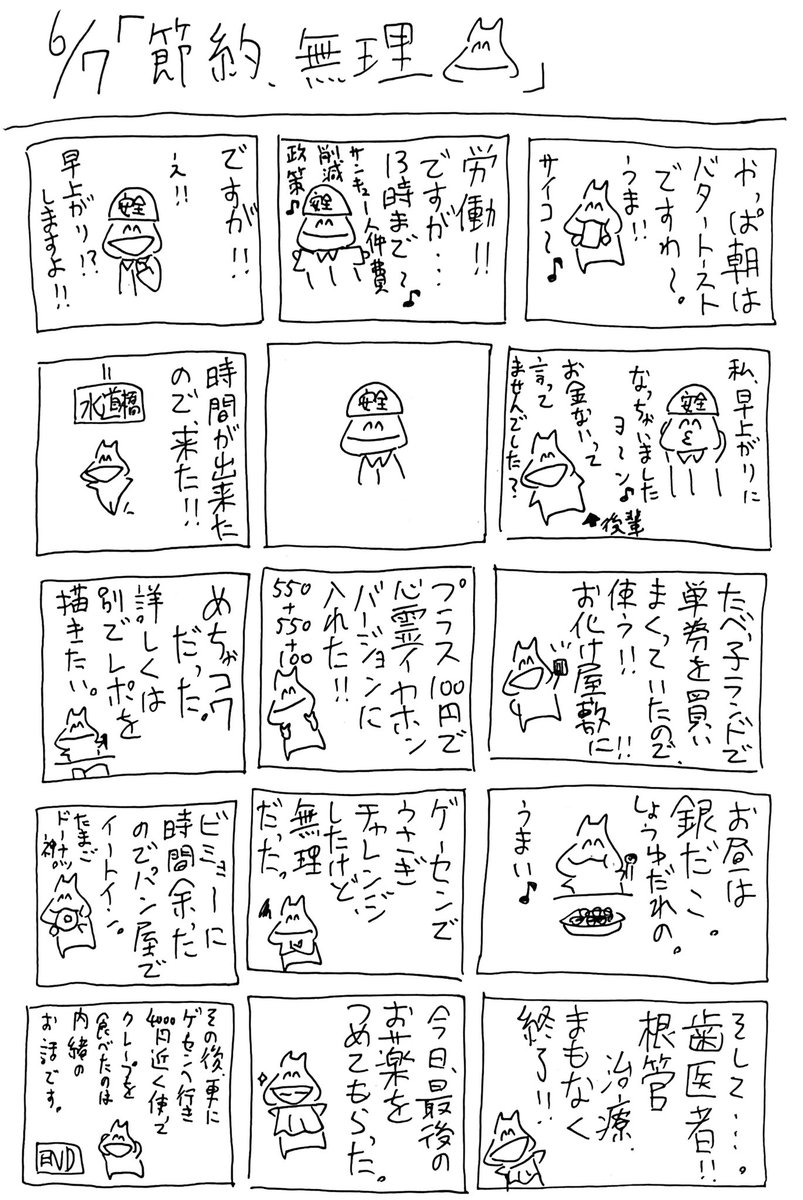 6/7「節約、無理」
やっぱ朝は
バタートースト
ですわ〜。
うま!!
サイコ〜♪
労働!!
ですが…
13時まで〜♪
サンキュー人件費
削減
政策♪
安全
ですが!!
え!!
安全
早上がり!?
しますよ!!
私、早上がりに
なっちゃいました
ヨ〜ン♪
安全
お金ないって
言って
ませんでした?
後輩
安全
時間が出来た
ので、来た!!
水道橋
たべっ子ランドで
単券を買い
まくっていたので、
使う!!
お化け屋敷に!!
プラス100円で
心霊イヤホン
バージョンに
入れた!!
550
+
550
+
100
めちゃコワ
だった。
詳しくは
別でレポを
描きたい。
お昼は
銀だこ。
しょうゆだれの。
うまい♪
ゲーセンで
うさぎ
チャレンジ
したけど、
無理
だった。
ビミョーに
時間余った
のでパン屋で
イートイン。
たまご
ドーナツ
神。
そして…。
歯医者!!
根管
治療
まもなく
終了!!
今日、最後の
お薬を
つめてもらった。
その後、更に
ゲーセンへ行き
4000円近く使って
クレープを
食べたのは
内緒の
お話です。
END